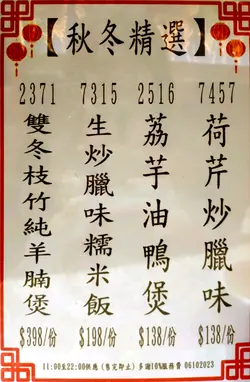 【秋冬精選】
2371
雙冬枝竹純羊腩煲
$398/份
7315
生炒臘味糯米飯
$198/份
2516
荔芋油鴨煲
$138/份
7457
荷芹炒臘味
$138/份
11:00至22:00供應 (售完即止) 多謝10%服務費 06102023